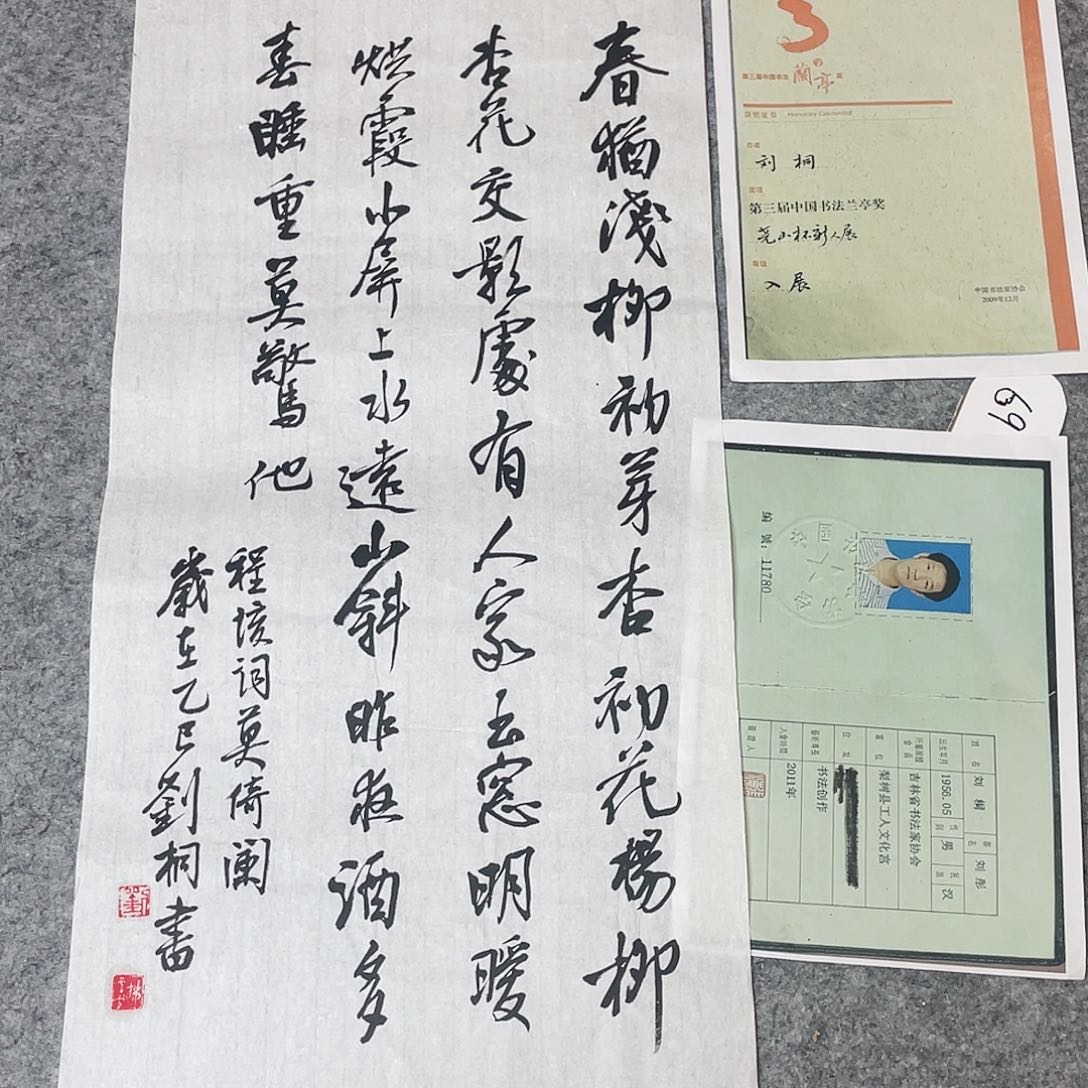 春猶淺柳初芽杏初花楊柳
杏花交影處有人家玉窓明暖
烘霞小屏上水遠山斜昨夜酒多
春睡重莫驚他
程垓詞莫倚闌
歲在乙巳劉桐書
3
第三届中国书法兰亭奖
获奖证书 Honorary Credential
作者
刘桐
奖项
第三届中国书法兰亭奖
莞山杯新人展
等级
入展
中国书法家协会
2009年12月
69
编號：11780
姓名 刘桐 署名 刘彤
出生年月 1956.05 性别 男 民族 汉
所属团體會員 吉林省书法家协会
單位 梨树县工人文化宫
住址
藝術專長 书法创作
入會時間 2011年
簽證人